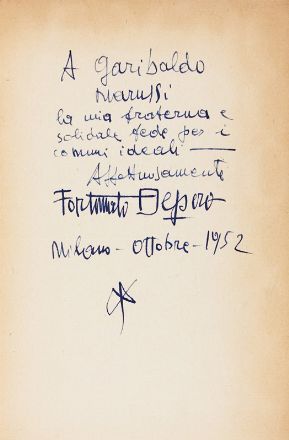 A Garibaldo
Marussi
la mia fraterna e
solidale fede per i
comuni ideali —
Affettuosamente
Fortunato Depero
Milano - ottobre - 1952